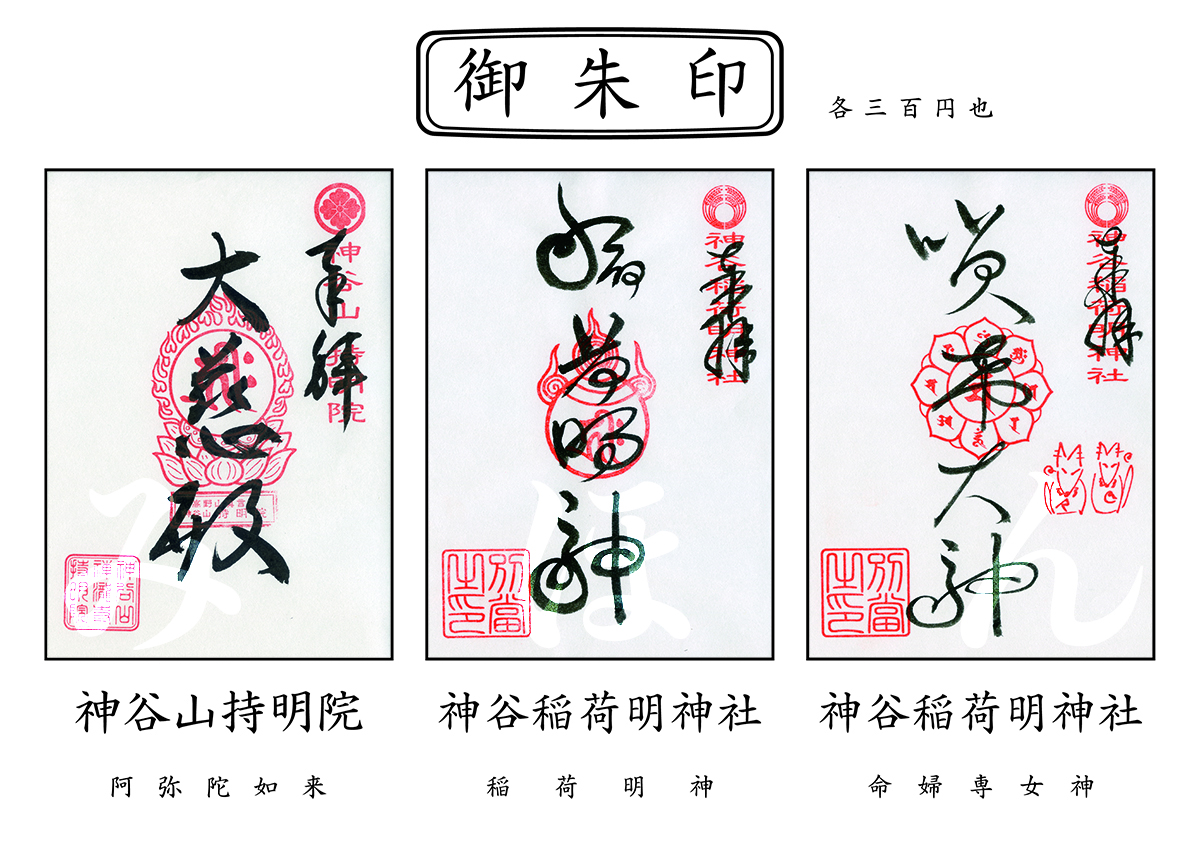 御朱印
各三百円也
神谷山 持明院
奉拝
大慈殿
神谷稲荷明神社
奉拝
稲荷明神
別當之印
神谷稲荷明神社
奉拝
咲来大神
別當之印
みほん
神谷山持明院
阿弥陀如来
神谷稲荷明神社
稲荷明神
神谷稲荷明神社
命婦専女神